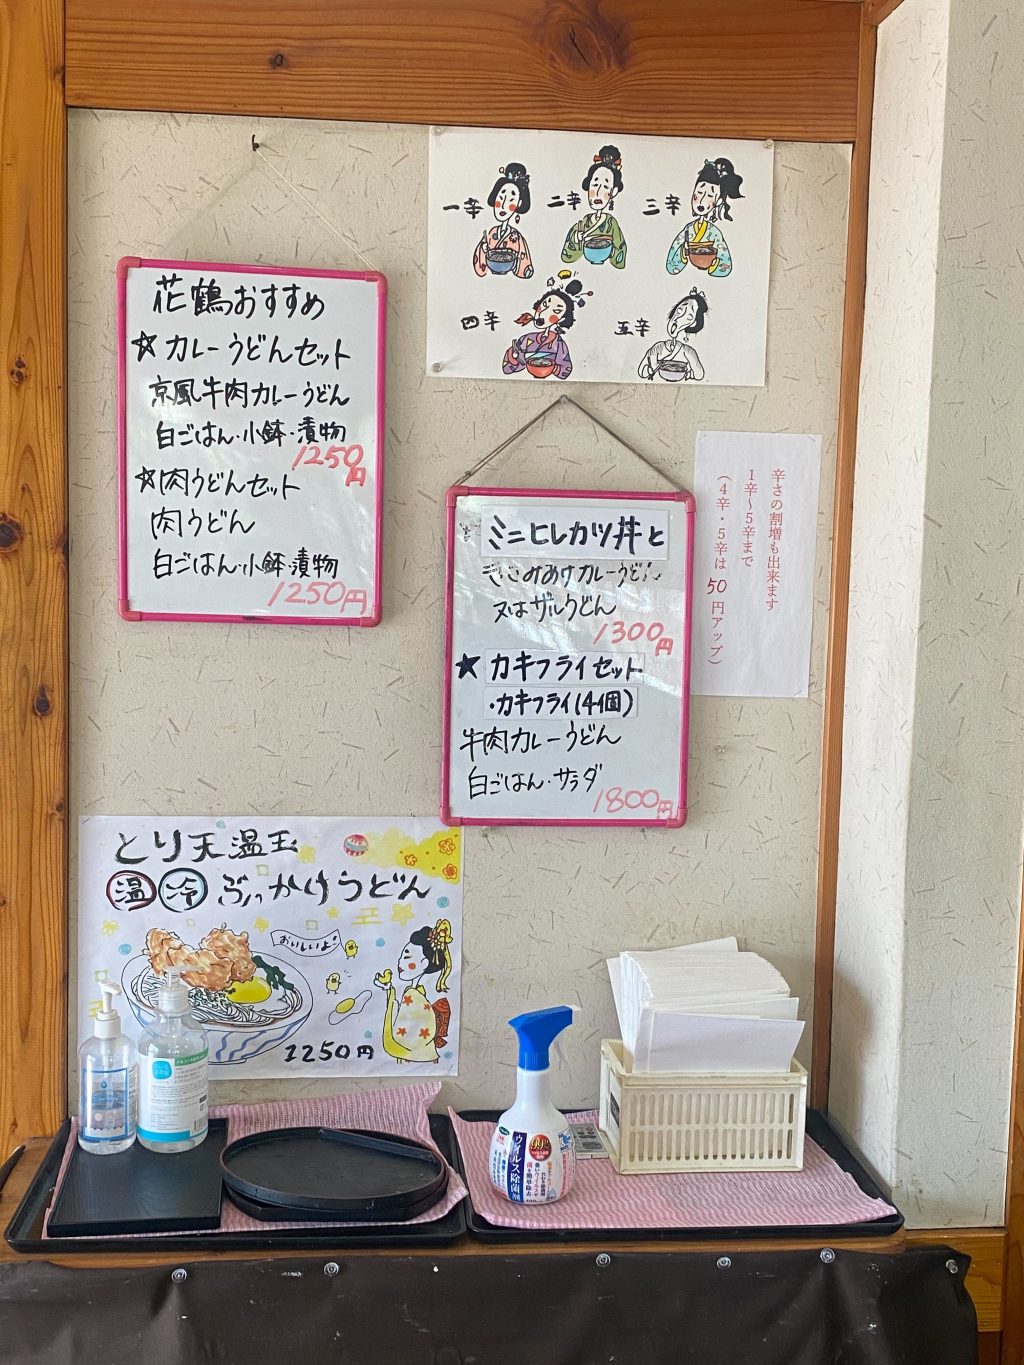 花鶴おすすめ
☆カレーうどんセット
京風牛肉カレーうどん
白ごはん・小鉢・漬物
1250円
☆肉うどんセット
肉うどん
白ごはん・小鉢・漬物
1250円
一辛
二辛
三辛
四辛
五辛
ミニヒレカツ丼と
きざみあげカレーうどん
又はザルうどん
1300円
★カキフライセット
・カキフライ(4個)
牛肉カレーうどん
白ごはん・サラダ
1800円
辛さの割増も出来ます
1辛~5辛まで
(4辛・5辛は50円アップ)
とり天温玉
温 冷 ぶっかけうどん
おいしいよ!
1250円
ウイルス除菌剤